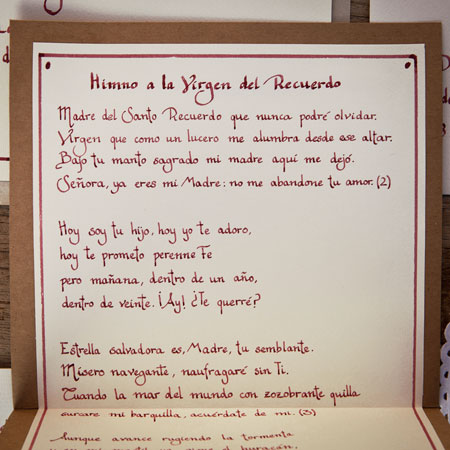 Himno a la Virgen del Recuerdo
Madre del Santo Recuerdo que nunca podré olvidar.
Virgen que como un lucero me alumbra desde ese altar.
Bajo tu manto sagrado mi madre aquí me dejó.
Señora, ya eres mi Madre; no me abandone tu amor. (2)
Hoy soy tu hijo, hoy yo te adoro,
hoy te prometo perenne Fe
pero mañana, dentro de un año,
dentro de veinte. ¡Ay! ¿Te querré?
Estrella salvadora es, Madre, tu semblante.
Mísero navegante, naufragaré sin Ti.
Cuando la mar del mundo con zozobrante quilla
surcare mi barquilla, acuérdate de mi. (3)
Aunque avance rugiendo la tormenta